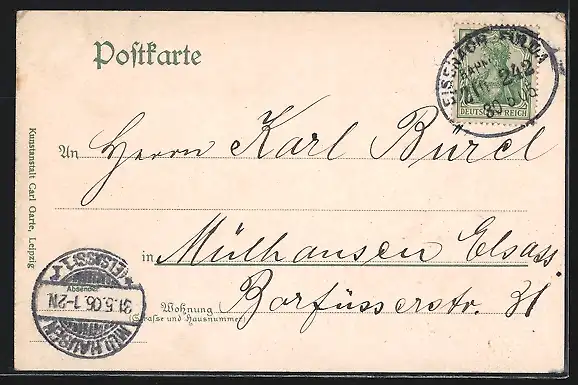 Postkarte
EISENACH FULDA
BAHNPOST
Zug 242
30 5 06
DEUTSCHES REICH
An Herrn Karl Bürcl
in Mülhausen Elsass
Wohnung Barfüsserstr. 31
(Straße und Hausnummer)
Absender
MÜLHAUSEN
31.5.06.1-2N
*(ELSASS) 1
Kunstanstalt Carl Garte, Leipzig